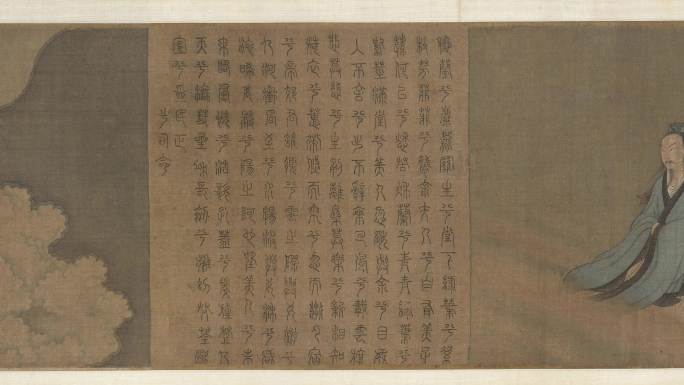 秋蘭兮蘪蕪羅生兮堂下綠葉兮素
枝芳菲菲兮襲予夫人兮自有美子
蓀何以兮愁苦秋蘭兮青青綠葉兮
紫莖滿堂兮美人忽獨與余兮目成
入不言兮出不辭乘回風兮載雲旗
悲莫悲兮生別離樂莫樂兮新相知
荷衣兮蕙帶儵而來兮忽而逝夕宿
兮帝郊君誰須兮雲之際與女遊兮
九河衝風至兮水揚波與女沐兮咸
池晞女髮兮陽之阿望美人兮未
來臨風怳兮浩歌孔蓋兮翠旍登九
天兮撫彗星竦長劍兮擁幼艾荃獨
宜兮為民正
少司命